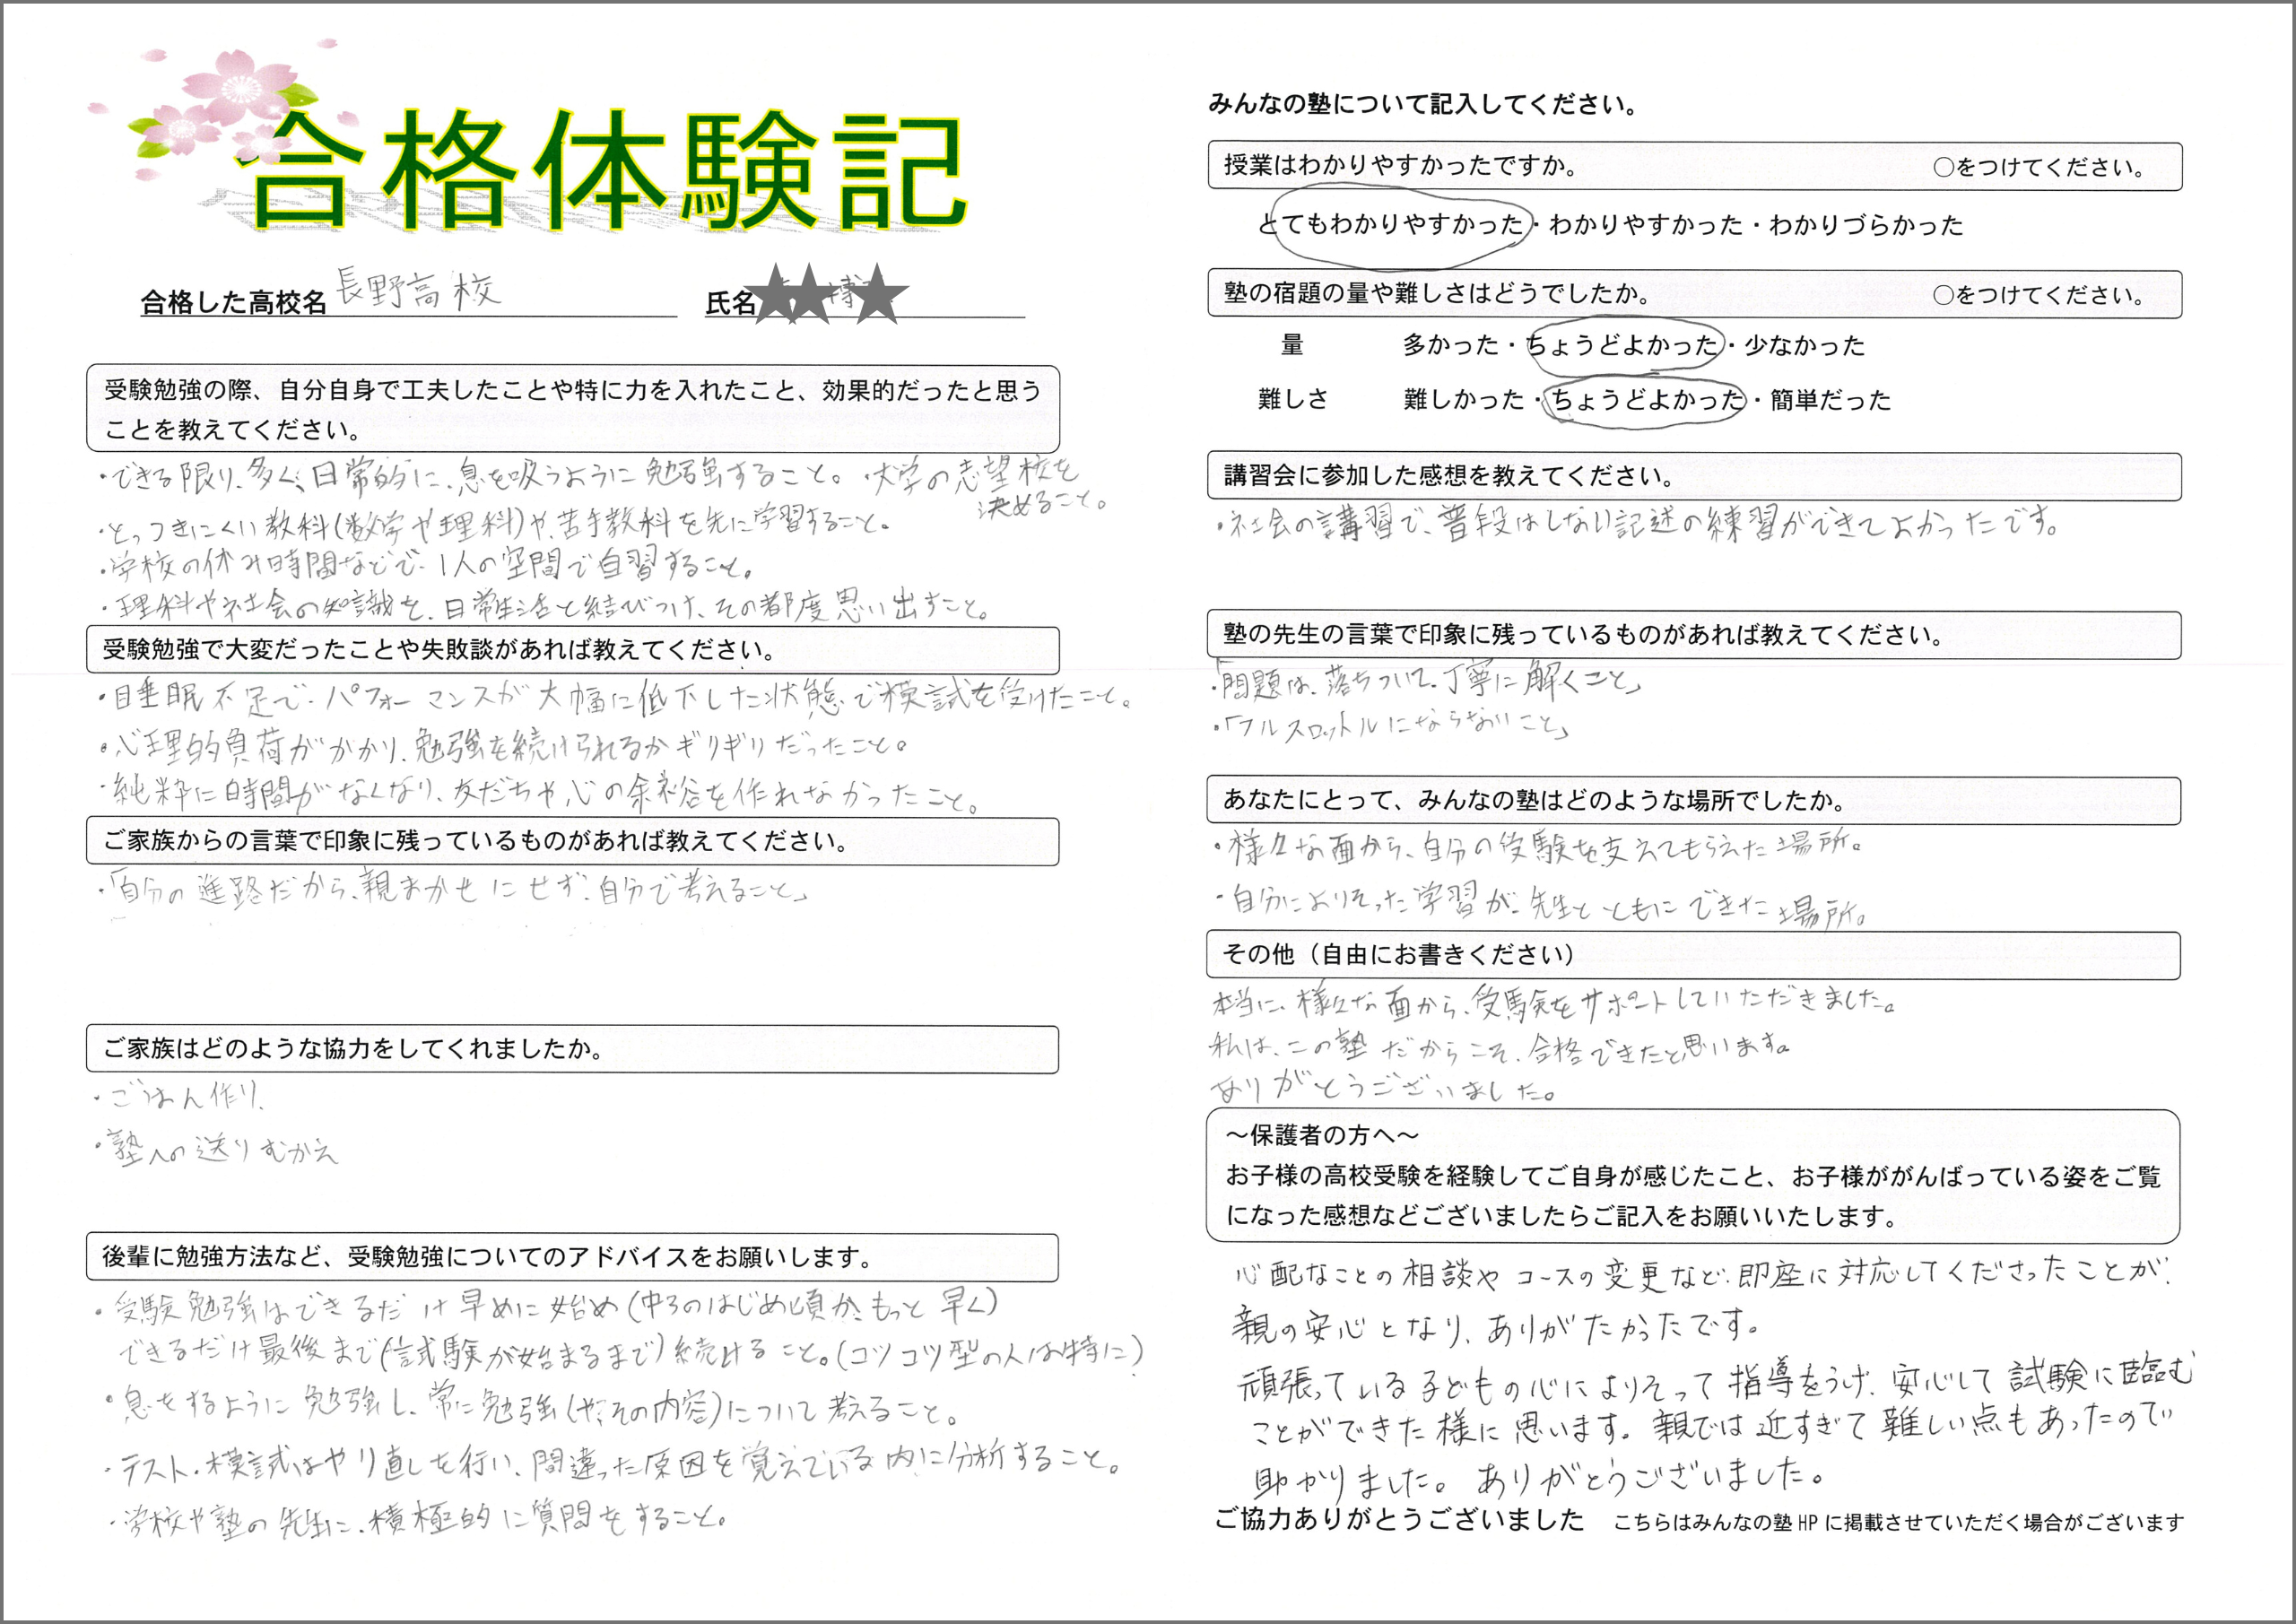 合格体験記
合格した高校名 長野高校 氏名
受験勉強の際、自分自身で工夫したことや特に力を入れたこと、効果的だったと思う
ことを教えてください。
・できる限り、多く、日常的に、息を吸うように勉強すること。・大学の志望校を
決めること。
・とっつきにくい教科(数学や理科)や、苦手教科を先に学習すること。
・学校の休み時間などで、1人の空間で自習すること。
・理科や社会の知識を、日常生活と結びつけ、その都度思い出すこと。
受験勉強で大変だったことや失敗談があれば教えてください。
・睡眠不足で、パフォーマンスが大幅に低下した状態で模試を受けたこと。
・心理的負荷がかかり、勉強を続けられるかギリギリだったこと。
・純粋に時間がなくなり、友だちや心の余裕を作れなかったこと。
ご家族からの言葉で印象に残っているものがあれば教えてください。
・「自分の進路だから、親まかせにせず、自分で考えること」
ご家族はどのような協力をしてくれましたか。
・ごはん作り
・塾への送りむかえ
後輩に勉強方法など、受験勉強についてのアドバイスをお願いします。
・受験勉強はできるだけ早めに始め(中3のはじめ頃か、もっと早く)
できるだけ最後まで(試験が始まるまで)続けること。(コツコツ型の人は特に)
・息をするように勉強し、常に勉強(や、その内容)について考えること。
・テスト・模試はやり直しを行い、間違った原因を覚えている内に分析すること。
・学校や塾の先生に、積極的に質問をすること。
みんなの塾について記入してください。
授業はわかりやすかったですか。 ○をつけてください。
とてもわかりやすかった・わかりやすかった・わかりづらかった
塾の宿題の量や難しさはどうでしたか。 ○をつけてください。
量 多かった・ちょうどよかった・少なかった
難しさ 難しかった・ちょうどよかった・簡単だった
講習会に参加した感想を教えてください。
・社会の講習で、普段はしない記述の練習ができてよかったです。
塾の先生の言葉で印象に残っているものがあれば教えてください。
・「問題は、落ちついて、丁寧に解くこと」
・「フルスロットルにならないこと」
あなたにとって、みんなの塾はどのような場所でしたか。
・様々な面から、自分の受験を支えてもらえた場所。
・自分によりそった学習が、先生とともにできた場所。
その他（自由にお書きください）
本当に、様々な面から、受験をサポートしていただきました。
私は、この塾だからこそ、合格できたと思います。
ありがとうございました。
～保護者の方へ～
お子様の高校受験を経験してご自身が感じたこと、お子様ががんばっている姿をご覧
になった感想などございましたらご記入をお願いいたします。
心配なことの相談やコースの変更など、即座に対応してくださったことが、
親の安心となり、ありがたかったです。
頑張っている子どもの心によりそって指導をうけ、安心して試験に臨む
ことができた様に思います。親では近すぎて難しい点もあったので
助かりました。ありがとうございました。
ご協力ありがとうございました こちらはみんなの塾 HP に掲載させていただく場合がございます